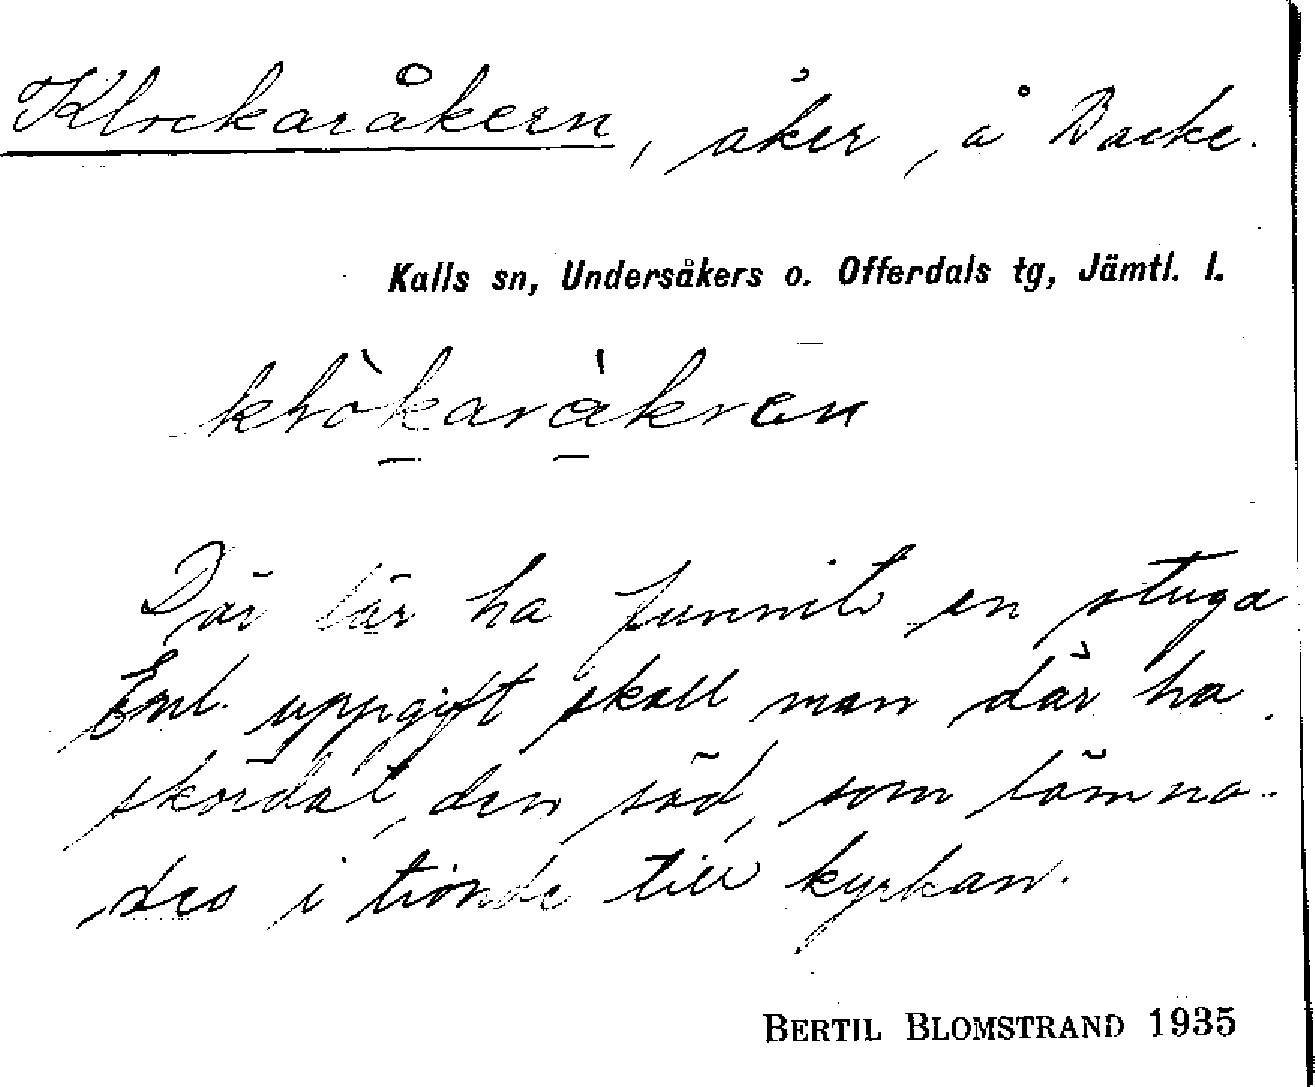 Klockaråkern, åker, å Backe.
Kalls sn, Undersåkers o. Offerdals tg, Jämtl. l.
Där lär ha funnits en stuga
Enl. uppgift skall man där ha
skördat, den säd, som lämna-
des i tionde till kyrkan.
BERTIL BLOMSTRAND 1935